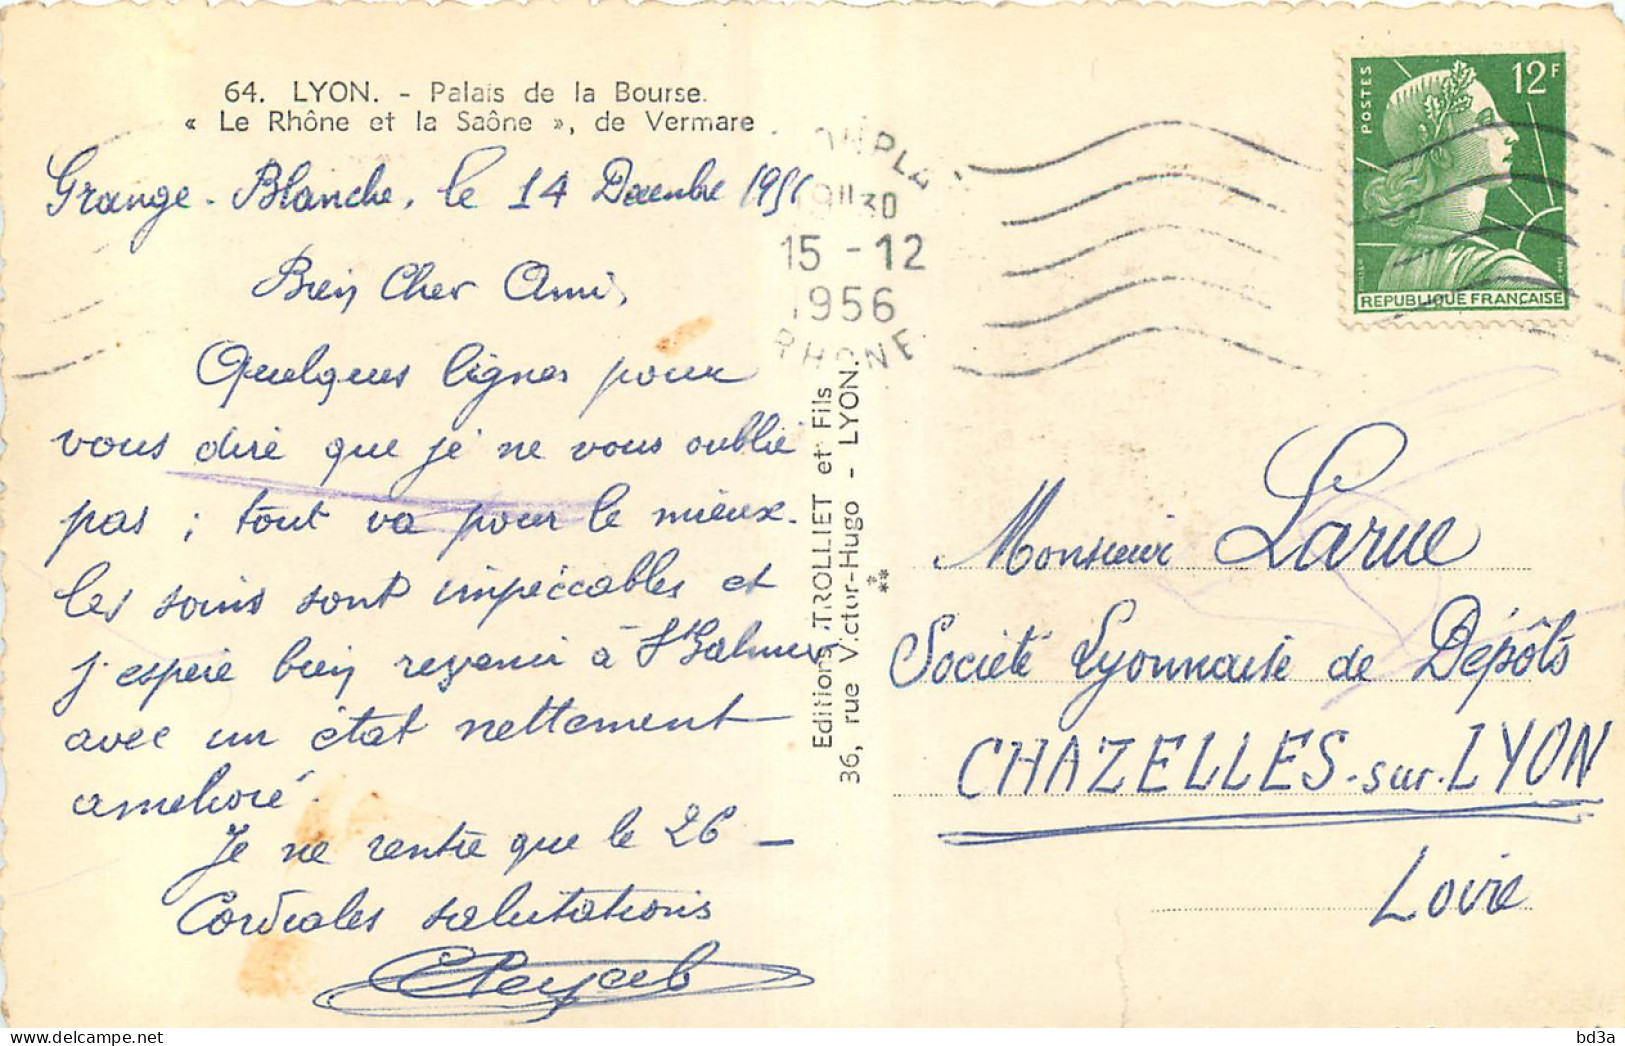 64. LYON. - Palais de la Bourse.
« Le Rhône et la Saône », de Vermare
Grange-Blanche, le 14 Décembre 195
Bien Cher Ami,
Quelques lignes pour
vous dire que je ne vous oublie
pas ; tout va pour le mieux.
Les soins sont impeccables et
j'espère bien revenir à St Galmier
avec un état nettement
amélioré.
Je ne rentre que le 26 —
Cordiales salutations
Editions TROLLIET et Fils
36, rue Victor-Hugo - LYON.
9H30
15-12
1956
RHONE
POSTES
12F
REPUBLIQUE FRANÇAISE
Monsieur Larue
Société Lyonnaise de Dépôts
CHAZELLES-sur-LYON
Loire
bd3a